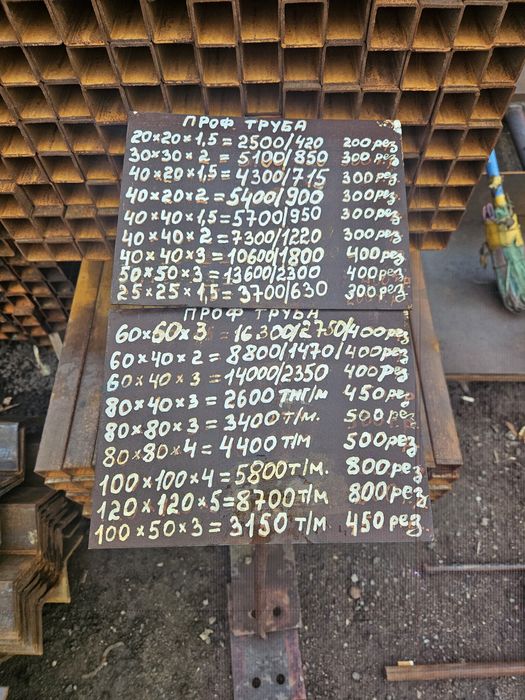 ПРОФ. ТРУБА
20×20×1,5=2500/420 200рез
30×30×2=5100/850 300рез
40×20×1,5=4300/715 300рез
40×20×2=5400/900 300рез
40×40×1,5=5700/950 300рез
40×40×2=7300/1220 300рез
40×40×3=10600/1800 400рез
50×50×3=13600/2300 400рез
25×25×1,5=3700/630 300рез
ПРОФ ТРУБА
60×60×3=16300/2750/400рез
60×40×2=8800/1470/400рез
60×40×3=14000/2350 400рез
80×40×3=2600 тнг/м 450рез
80×80×3=3400т/м. 500рез
80×80×4=4400т/м 500рез
100×100×4=5800т/м. 800рез
120×120×5=8700т/м 800рез
100×50×3=3150т/м 450рез